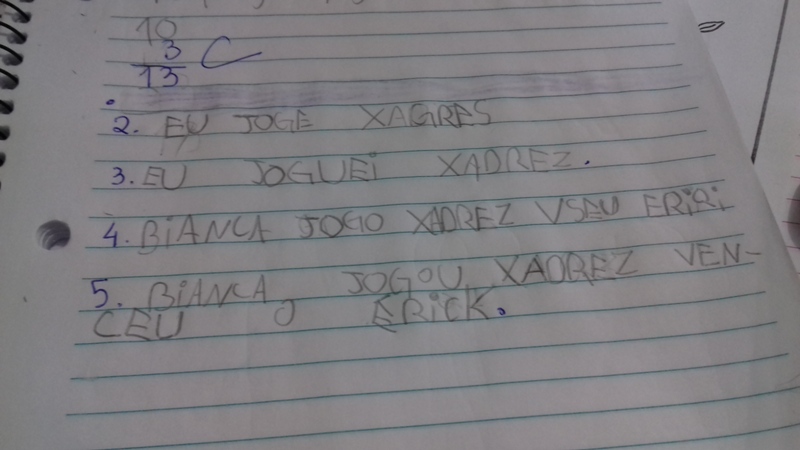 10
3
13 C
2. EU JOGE XAGRES
3. EU JOGUEi XADREZ.
4. BiANCA JOGO XADREZ VSEU ERiRi
5. BiANCA, JOGOU XADREZ VEN-
CEU O ERiCK.